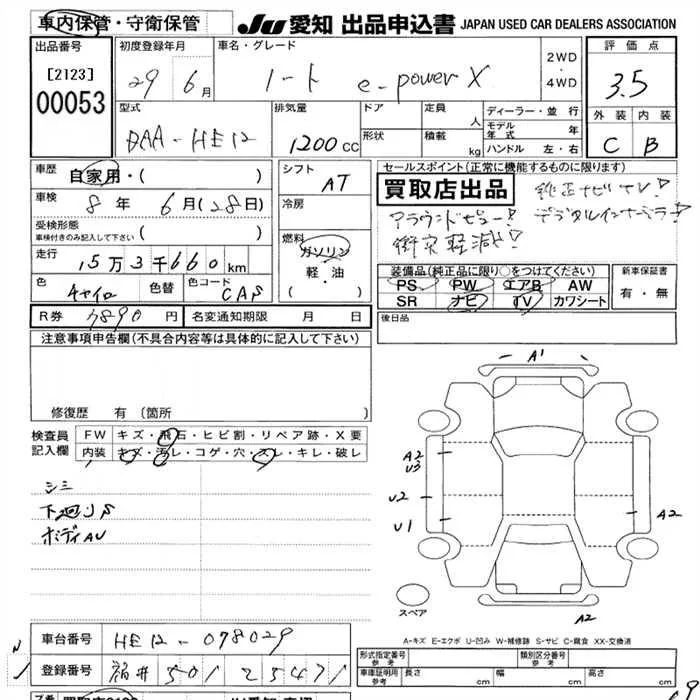 車内保管・守衛保管 JU 愛知 出品申込書 JAPAN USED CAR DEALERS ASSOCIATION
出品番号 初度登録年月 車名・グレード 評価点
[2123] 29 6月 ノート e-power X 2WD・4WD 3.5
00053
型式 排気量 ドア 定員 人 ディーラー・並行
モデル年式 年 外装 内装
DAA-HE12 1200cc 形状 積載 kg ハンドル 左・右 C B
車歴 自家用・( ) シフト AT セールスポイント(正常に機能するものに限ります)
買取店出品 純正ナビTV!
車検 8年 6月(28日) 冷房 アラウンドビュー! デジタルインナーミラー!
受検形態 車検付きのみ記入して下さい ( ) 衝突軽減!
走行 15万3千660km 燃料 ガソリン 軽・油 ( )
装備品(純正品に限り○をつけてください) 新車保証書
PS PW エアB AW 有・無
SR ナビ TV カワシート
色 チャイロ 色替 色コード CAS
R券 7890円 名変通知期限 月 日 後日品
注意事項申告欄(不具合内容等は具体的に記入して下さい)
修復歴 有(箇所 )
検査員記入欄 FW キズ・飛石・ヒビ割・リペア跡・X要
内装 キズ・汚レ・コゲ・穴・スレ・キレ・破レ
シミ
下廻りS
ボディAU
A1
A2
U3
U2
U1
A2
A2
スペア
A-キズ E-エクボ U-凹み W-補修跡 S-サビ C-腐食 XX-交換済
車台番号 HE12-078029
登録番号 福井 501 2 5471
形式指定番号 参考 類別区分番号 参考
車庫証明用 参考 長さ cm 幅 cm 高さ cm